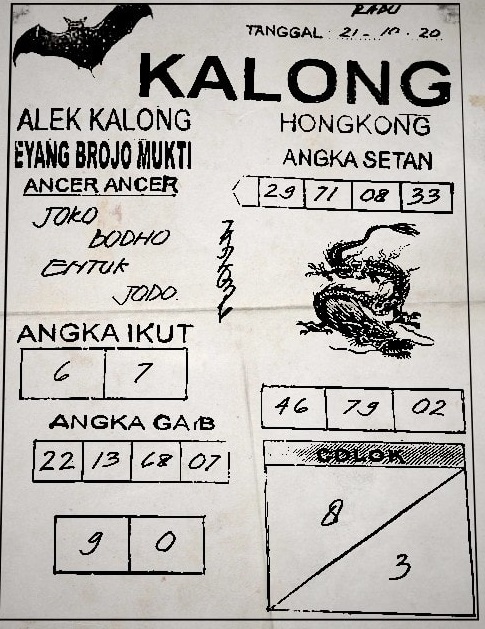 RABU
TANGGAL : 21 - 10 . 20
KALONG
ALEK KALONG
EYANG BROJO MUKTI
ANCER ANCER
JOKO
BODHO
ENTUK
JODO.
HONGKONG
ANGKA SETAN
29 71 08 33
ANGKA IKUT
6 7
46 79 02
ANGKA GAIB
22 13 68 07
9 0
COLOK
8
3